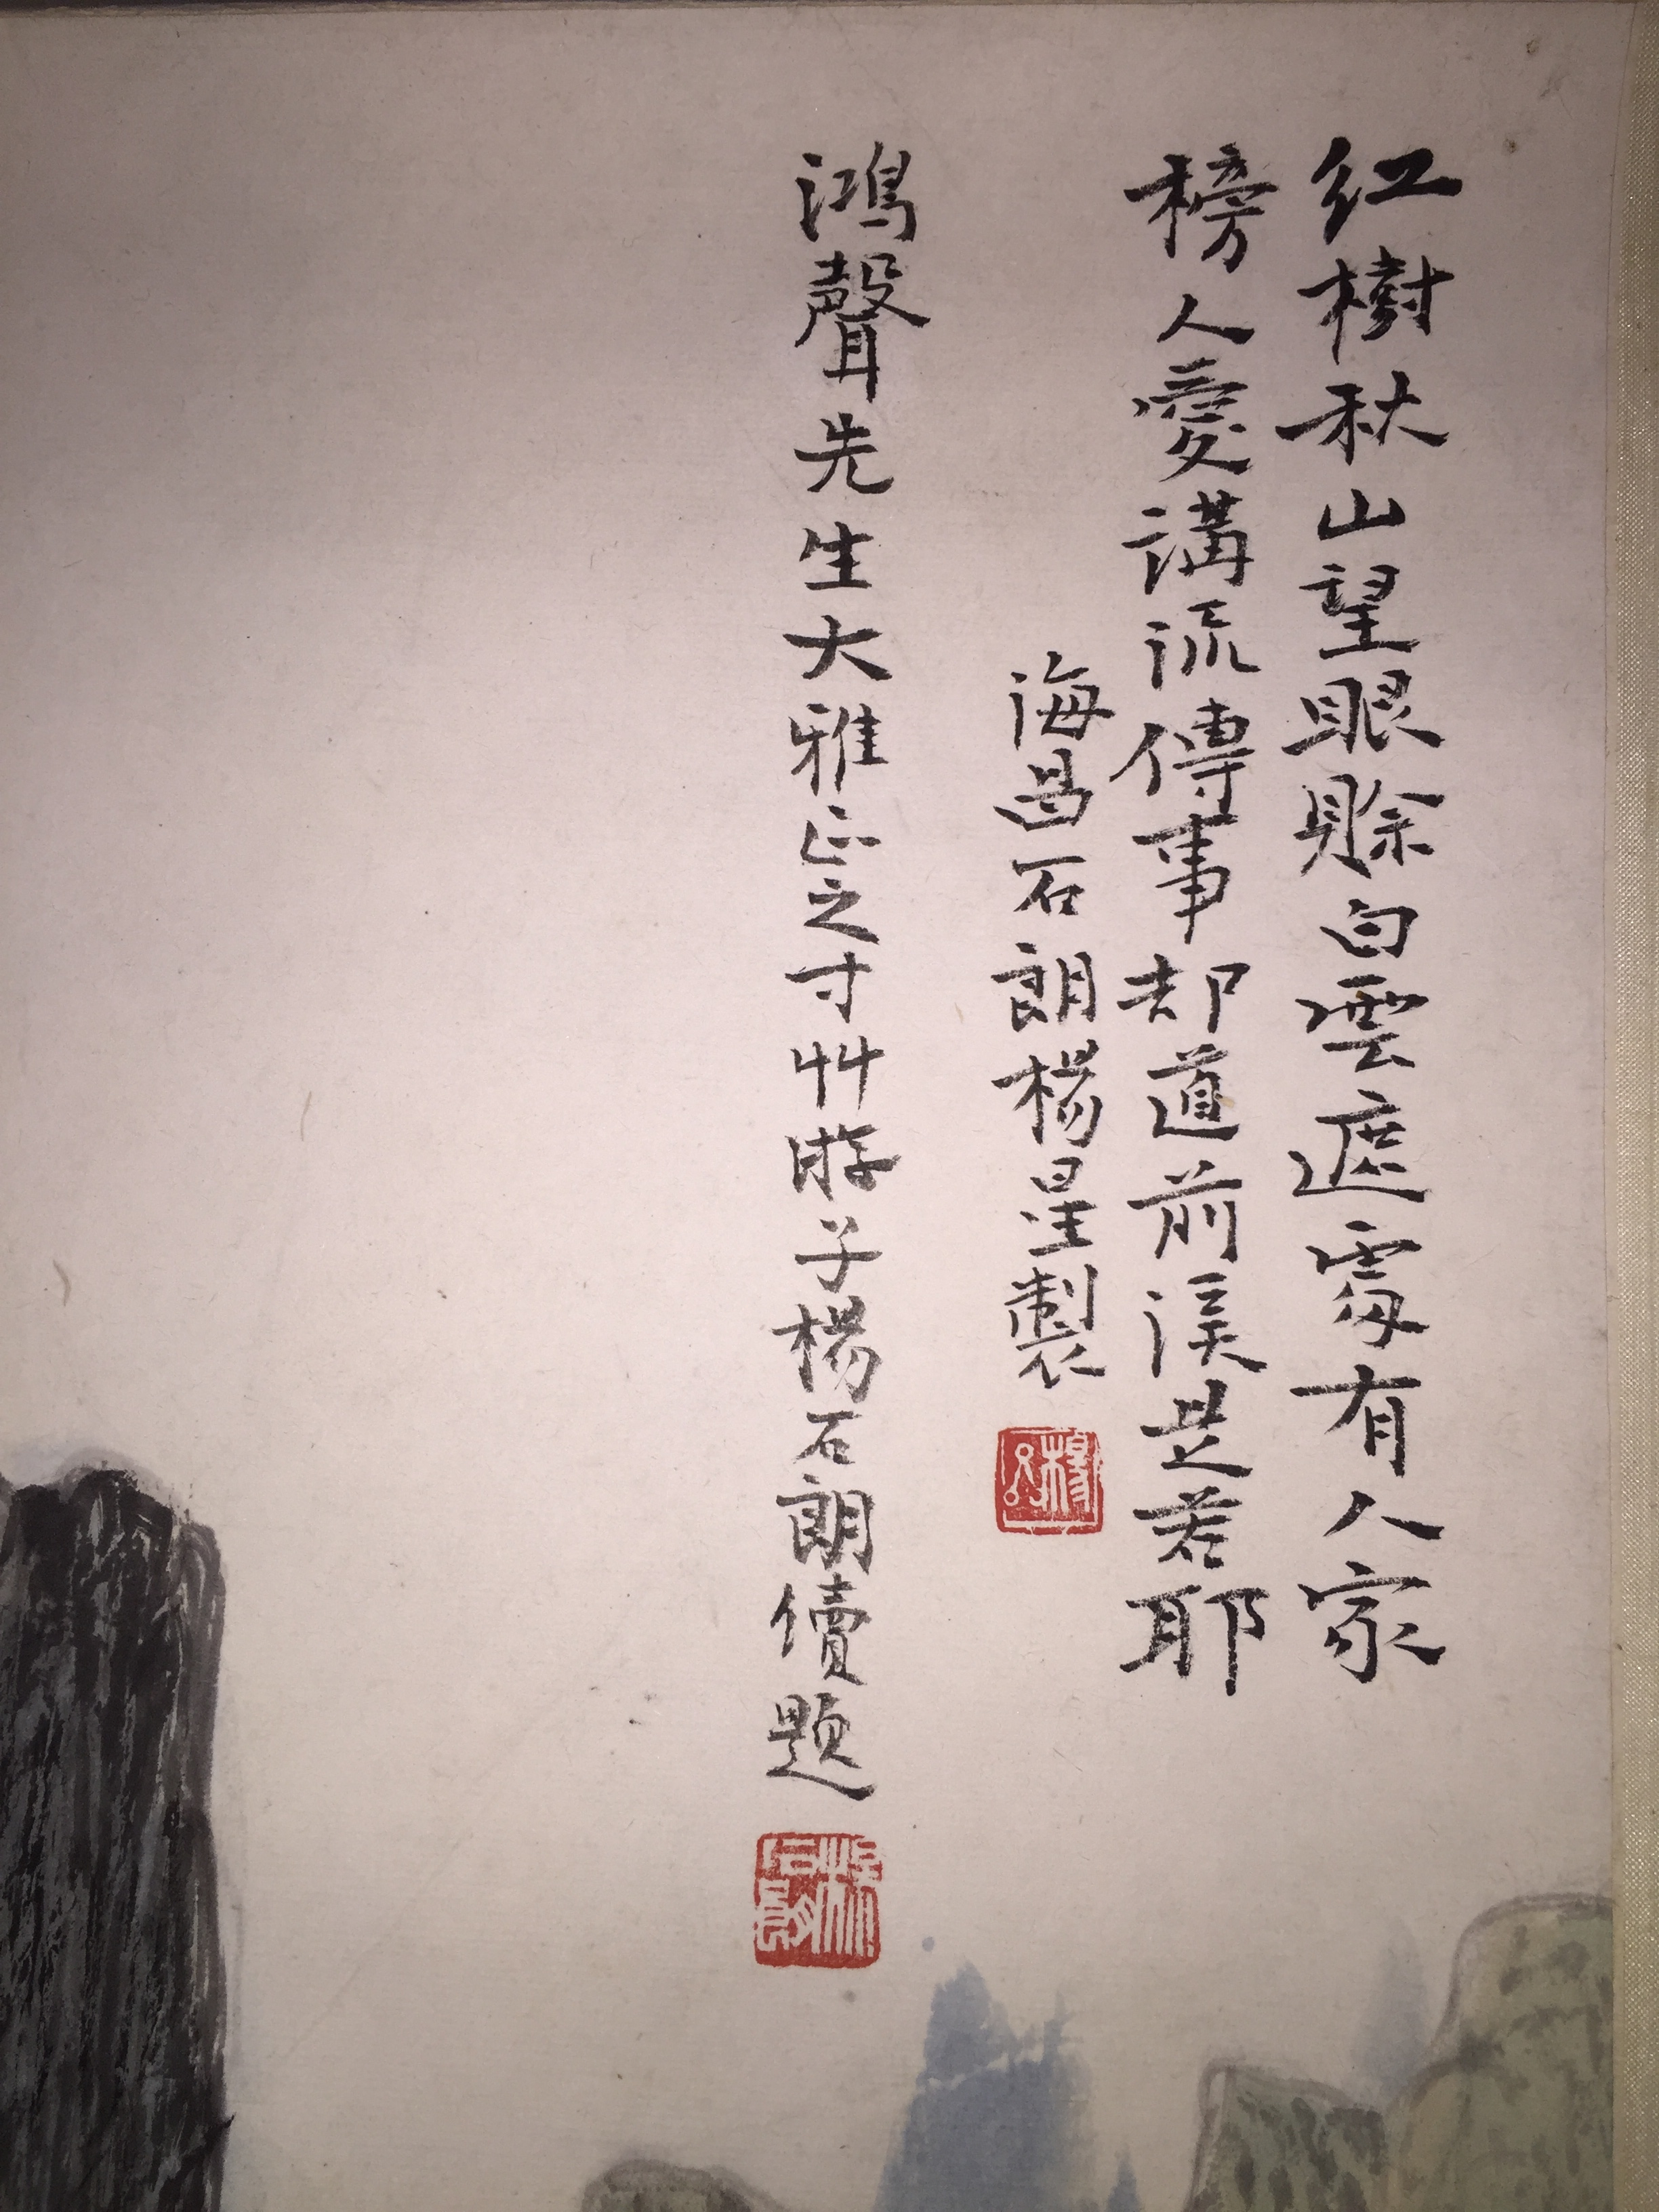 紅樹秋山望眼賒白雲遮處有人家
榜人愛講流傳事却道前溪是若耶
海昌石朗楊星製
鴻聲先生大雅正之寸艸游子楊石朗續題